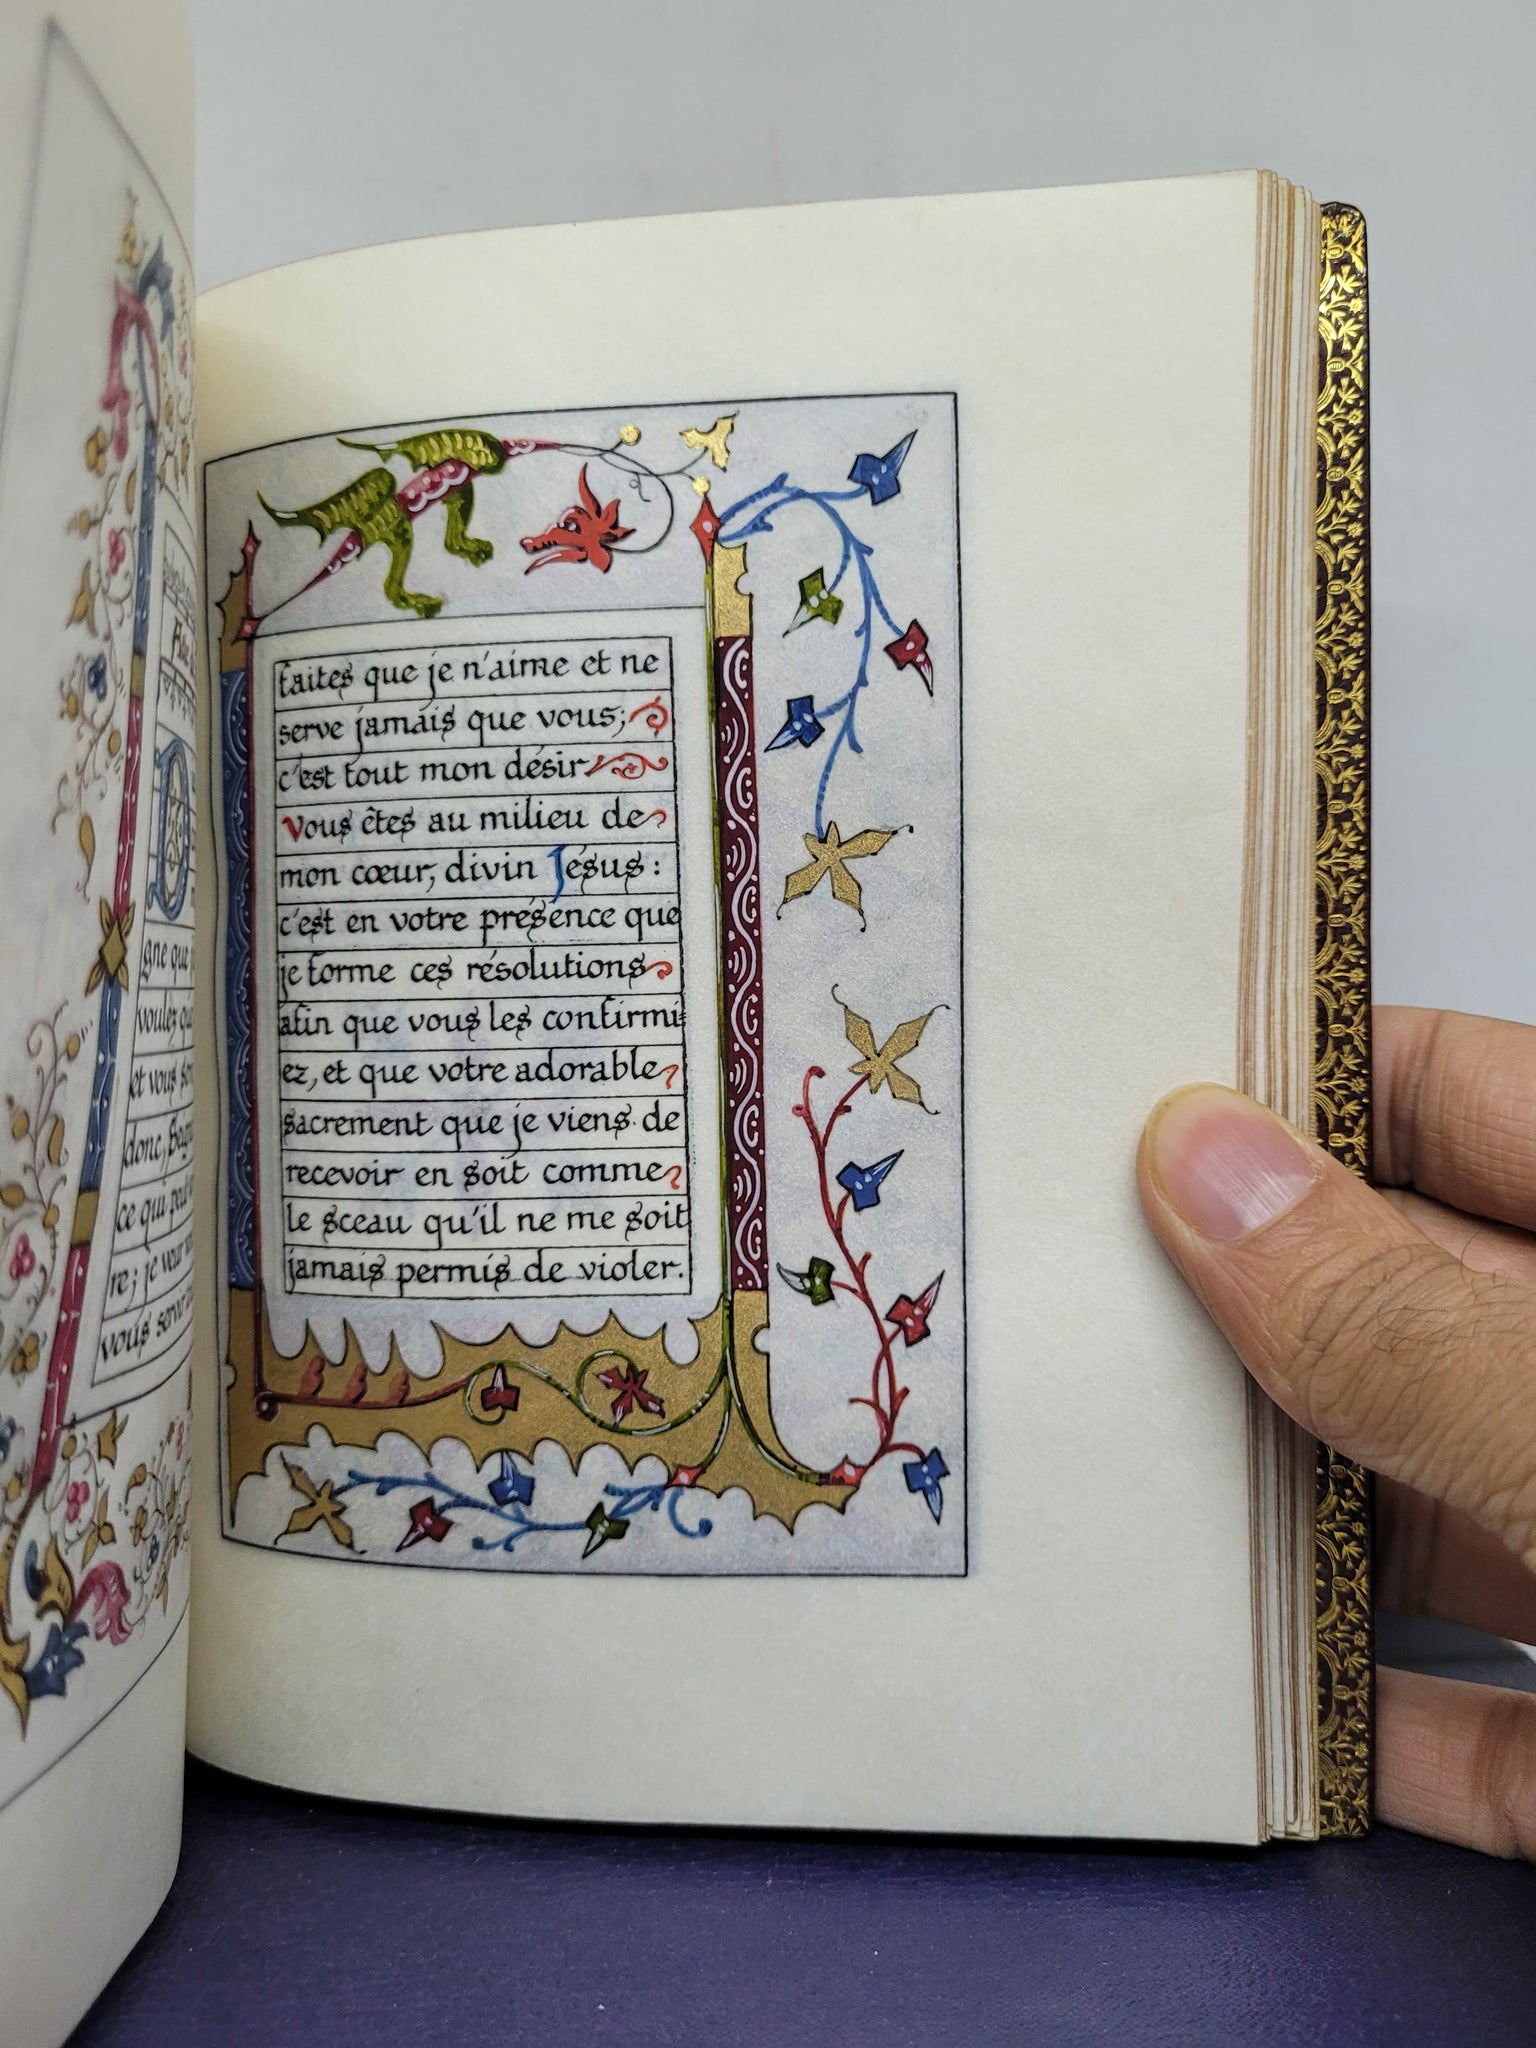 gne que
voulez
et vous
donc,
ce qui
re; je veux
vous servir
faites que je n'aime et ne
serve jamais que vous;
c'est tout mon désir
Vous êtes au milieu de
mon cœur, divin Jésus :
c'est en votre présence que
je forme ces résolutions
afin que vous les confirmi=
ez, et que votre adorable
sacrement que je viens de
recevoir en soit comme
le sceau qu'il ne me soit
jamais permis de violer.